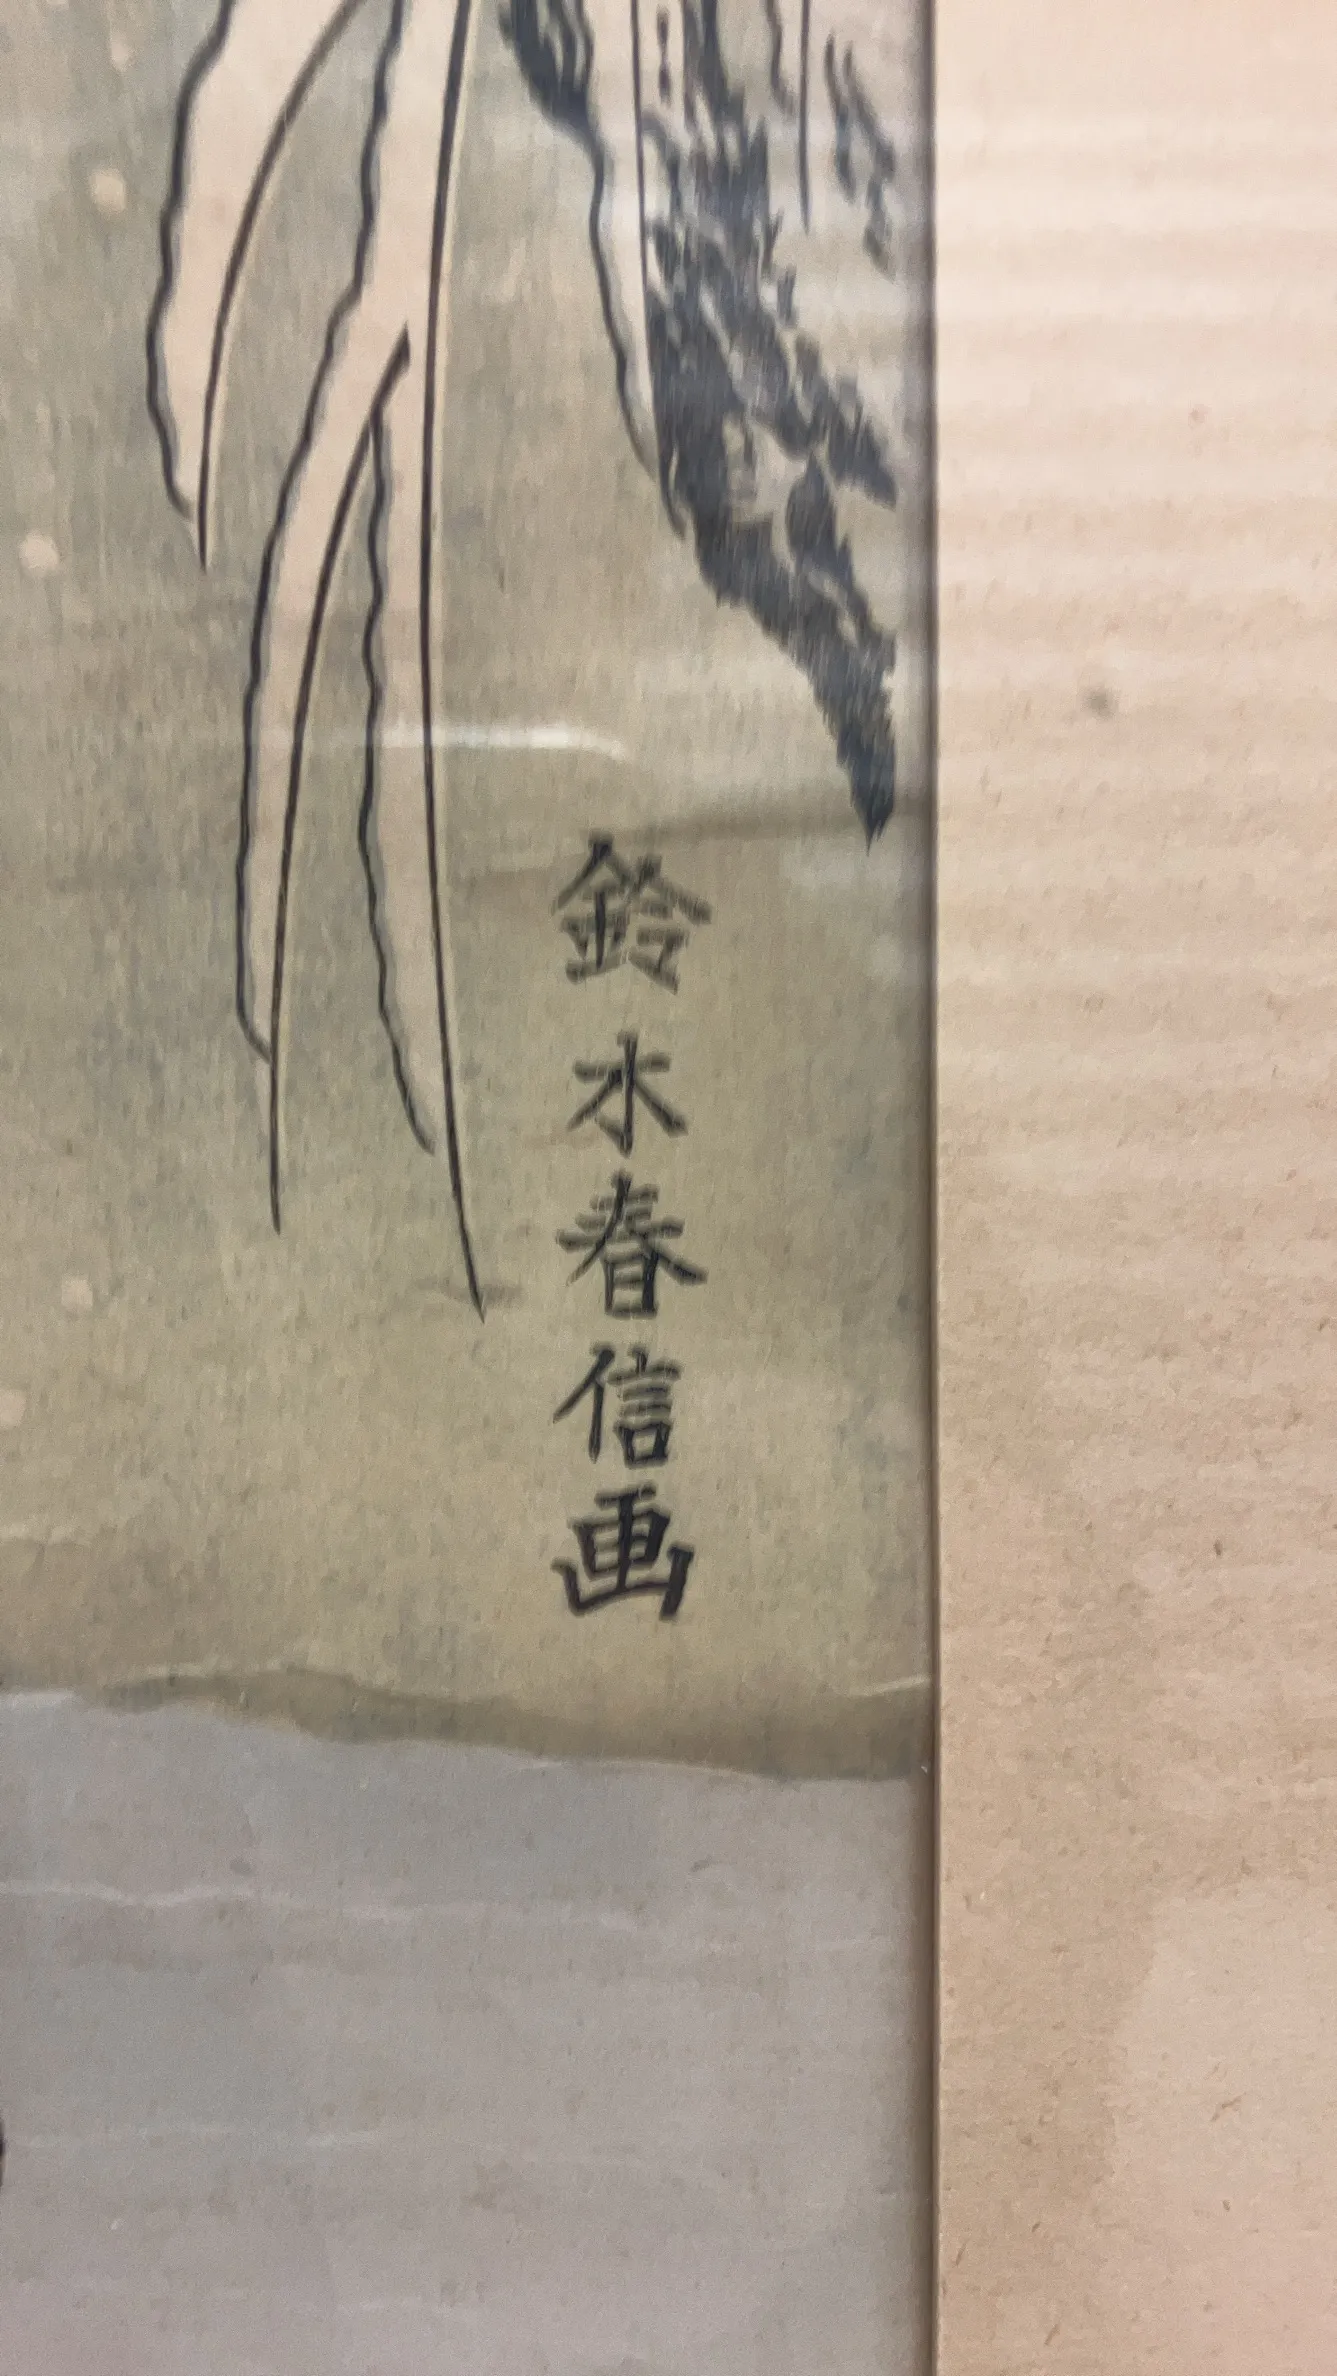 鈴木春信画